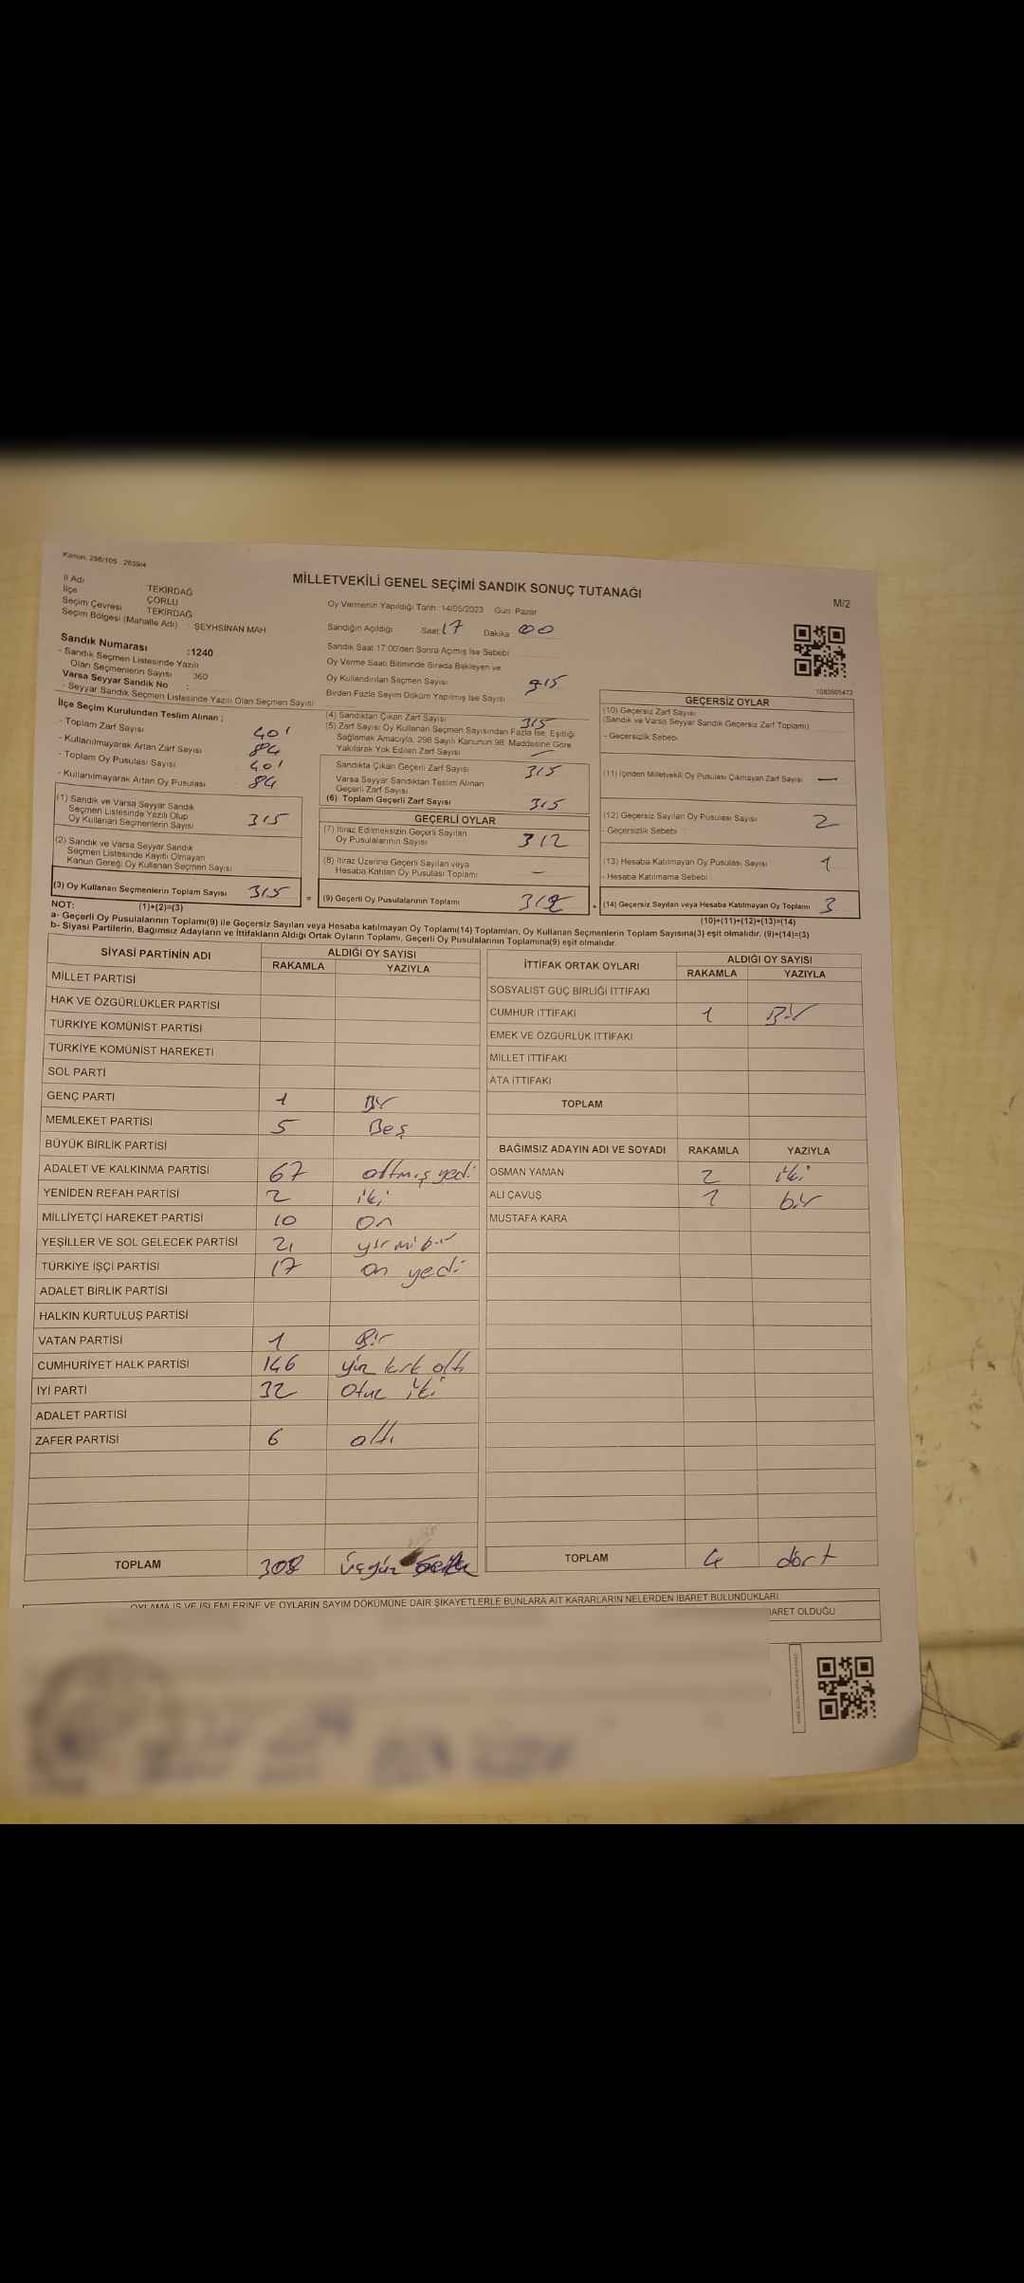 Kanun: 298/105 2839/4
MİLLETVEKİLİ GENEL SEÇİMİ SANDIK SONUÇ TUTANAĞI
M/2
İl Adı : TEKİRDAĞ
İlçe : ÇORLU
Seçim Çevresi : TEKİRDAĞ
Seçim Bölgesi (Mahalle Adı) : ŞEYHSİNAN MAH
Sandık Numarası :1240
- Sandık Seçmen Listesinde Yazılı
Olan Seçmenlerin Sayısı : 360
Varsa Seyyar Sandık No :
- Seyyar Sandık Seçmen Listesinde Yazılı Olan Seçmen Sayısı
Oy Vermenin Yapıldığı Tarih: 14/05/2023 Gün: Pazar
Sandığın Açıldığı Saat: 17 Dakika: 00
Sandık Saat 17:00'den Sonra Açılmış İse Sebebi
Oy Verme Saati Bitiminde Sırada Bekleyen ve
Oy Kullandırılan Seçmen Sayısı
Birden Fazla Sayım Döküm Yapılmış İse Sayısı
1083501473
İlçe Seçim Kurulundan Teslim Alınan ;
- Toplam Zarf Sayısı 401
- Kullanılmayarak Artan Zarf Sayısı 84
- Toplam Oy Pusulası Sayısı 401
- Kullanılmayarak Artan Oy Pusulası 84
(1) Sandık ve Varsa Seyyar Sandık
Seçmen Listesinde Yazılı Olup
Oy Kullanan Seçmenlerin Sayısı 315
(2) Sandık ve Varsa Seyyar Sandık
Seçmen Listesinde Kayıtlı Olmayan
Kanun Gereği Oy Kullanan Seçmen Sayısı
(3) Oy Kullanan Seçmenlerin Toplam Sayısı 315
(4) Sandıktan Çıkan Zarf Sayısı 315
(5) Zarf Sayısı Oy Kullanan Seçmen Sayısından Fazla İse, Eşitliği
Sağlamak Amacıyla, 298 Sayılı Kanunun 98. Maddesine Göre
Yakılarak Yok Edilen Zarf Sayısı —
Sandıkta Çıkan Geçerli Zarf Sayısı 315
Varsa Seyyar Sandıktan Teslim Alınan
Geçerli Zarf Sayısı
(6) Toplam Geçerli Zarf Sayısı 315
GEÇERLİ OYLAR
(7) İtiraz Edilmeksizin Geçerli Sayılan
Oy Pusulalarının Sayısı 312
(8) İtiraz Üzerine Geçerli Sayılan veya
Hesaba Katılan Oy Pusulası Toplamı —
= (9) Geçerli Oy Pusulalarının Toplamı 312
GEÇERSİZ OYLAR
(10) Geçersiz Zarf Sayısı
(Sandık ve Varsa Seyyar Sandık Geçersiz Zarf Toplamı)
- Geçersizlik Sebebi
(11) İçinden Milletvekili Oy Pusulası Çıkmayan Zarf Sayısı —
(12) Geçersiz Sayılan Oy Pusulası Sayısı 2
- Geçersizlik Sebebi
(13) Hesaba Katılmayan Oy Pusulası Sayısı 1
- Hesaba Katılmama Sebebi
+ (14) Geçersiz Sayılan veya Hesaba Katılmayan Oy Toplamı 3
NOT: (1)+(2)=(3) (10)+(11)+(12)+(13)=(14)
a- Geçerli Oy Pusulalarının Toplamı(9) ile Geçersiz Sayılan veya Hesaba katılmayan Oy Toplamı(14) Toplamları, Oy Kullanan Seçmenlerin Toplam Sayısına(3) eşit olmalıdır. (9)+(14)=(3)
b- Siyasi Partilerin, Bağımsız Adayların ve İttifakların Aldığı Ortak Oyların Toplamı, Geçerli Oy Pusulalarının Toplamına(9) eşit olmalıdır.
SİYASİ PARTİNİN ADI ALDIĞI OY SAYISI
RAKAMLA YAZIYLA
MİLLET PARTİSİ
HAK VE ÖZGÜRLÜKLER PARTİSİ
TÜRKİYE KOMÜNİST PARTİSİ
TÜRKİYE KOMÜNİST HAREKETİ
SOL PARTİ
GENÇ PARTİ 1 Bir
MEMLEKET PARTİSİ 5 Beş
BÜYÜK BİRLİK PARTİSİ
ADALET VE KALKINMA PARTİSİ 67 altmış yedi
YENİDEN REFAH PARTİSİ 2 iki
MİLLİYETÇİ HAREKET PARTİSİ 10 on
YEŞİLLER VE SOL GELECEK PARTİSİ 21 yirmi bir
TÜRKİYE İŞÇİ PARTİSİ 17 on yedi
ADALET BİRLİK PARTİSİ
HALKIN KURTULUŞ PARTİSİ
VATAN PARTİSİ 1 Bir
CUMHURİYET HALK PARTİSİ 146 yüz kırk altı
İYİ PARTİ 32 Otuz iki
ADALET PARTİSİ
ZAFER PARTİSİ 6 altı
TOPLAM 308 üçyüz sekiz
İTTİFAK ORTAK OYLARI ALDIĞI OY SAYISI
RAKAMLA YAZIYLA
SOSYALİST GÜÇ BİRLİĞİ İTTİFAKI
CUMHUR İTTİFAKI 1 Bir
EMEK VE ÖZGÜRLÜK İTTİFAKI
MİLLET İTTİFAKI
ATA İTTİFAKI
TOPLAM
BAĞIMSIZ ADAYIN ADI VE SOYADI RAKAMLA YAZIYLA
OSMAN YAMAN 2 iki
ALİ ÇAVUŞ 1 bir
MUSTAFA KARA
TOPLAM 4 dört
OYLAMA İŞ VE İŞLEMLERİNE VE OYLARIN SAYIM DÖKÜMÜNE DAİR ŞİKAYETLERLE BUNLARA AİT KARARLARIN NELERDEN İBARET BULUNDUKLARI
İBARET OLDUĞU